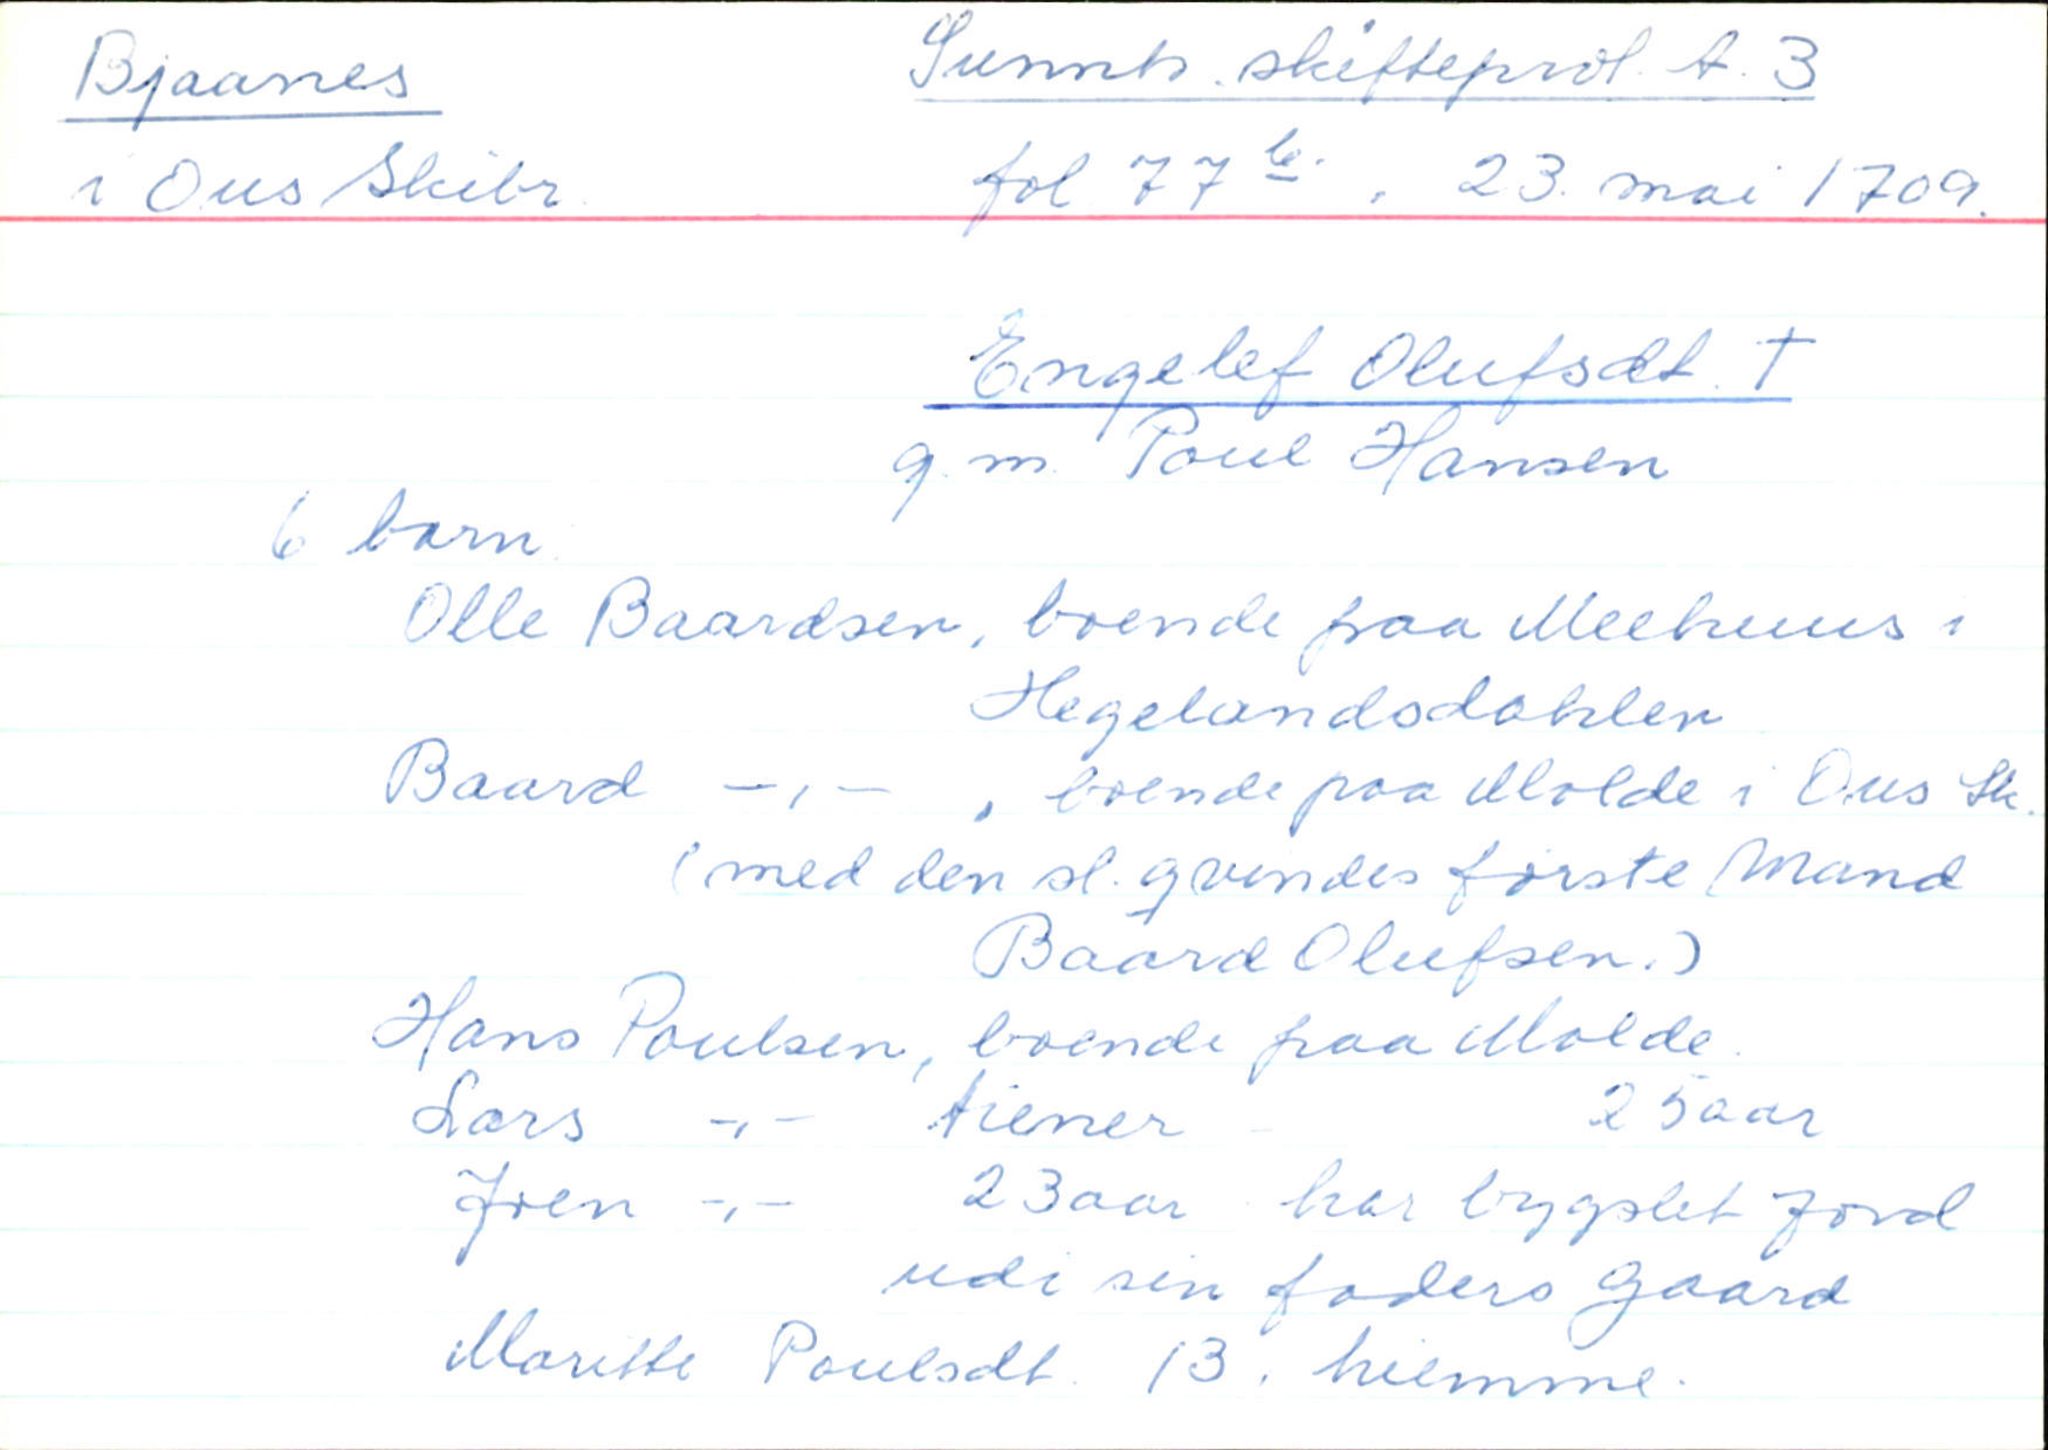 Bjaanes
Sunnh. skifteprot. A. 3
i Ous Skibr.
fol 77 b. , 23. mai 1709.
Engelef Olufsdt. †
g. m. Poul Hansen
6 barn.
Olle Baardsen, boende paa Meehuus i
Hegelandsdahlen
Baard -,- , boende paa Molde i Ous Sk.
(med den sl. qvindes første Mand
Baard Olufsen.)
Hans Poulsen, boende paa Molde.
Lars -,- tiener - 25 aar
Joen -,- 23 aar har bygslet Jord
udi sin faders Gaard
Maritte Poulsdt. 13, hiemme.